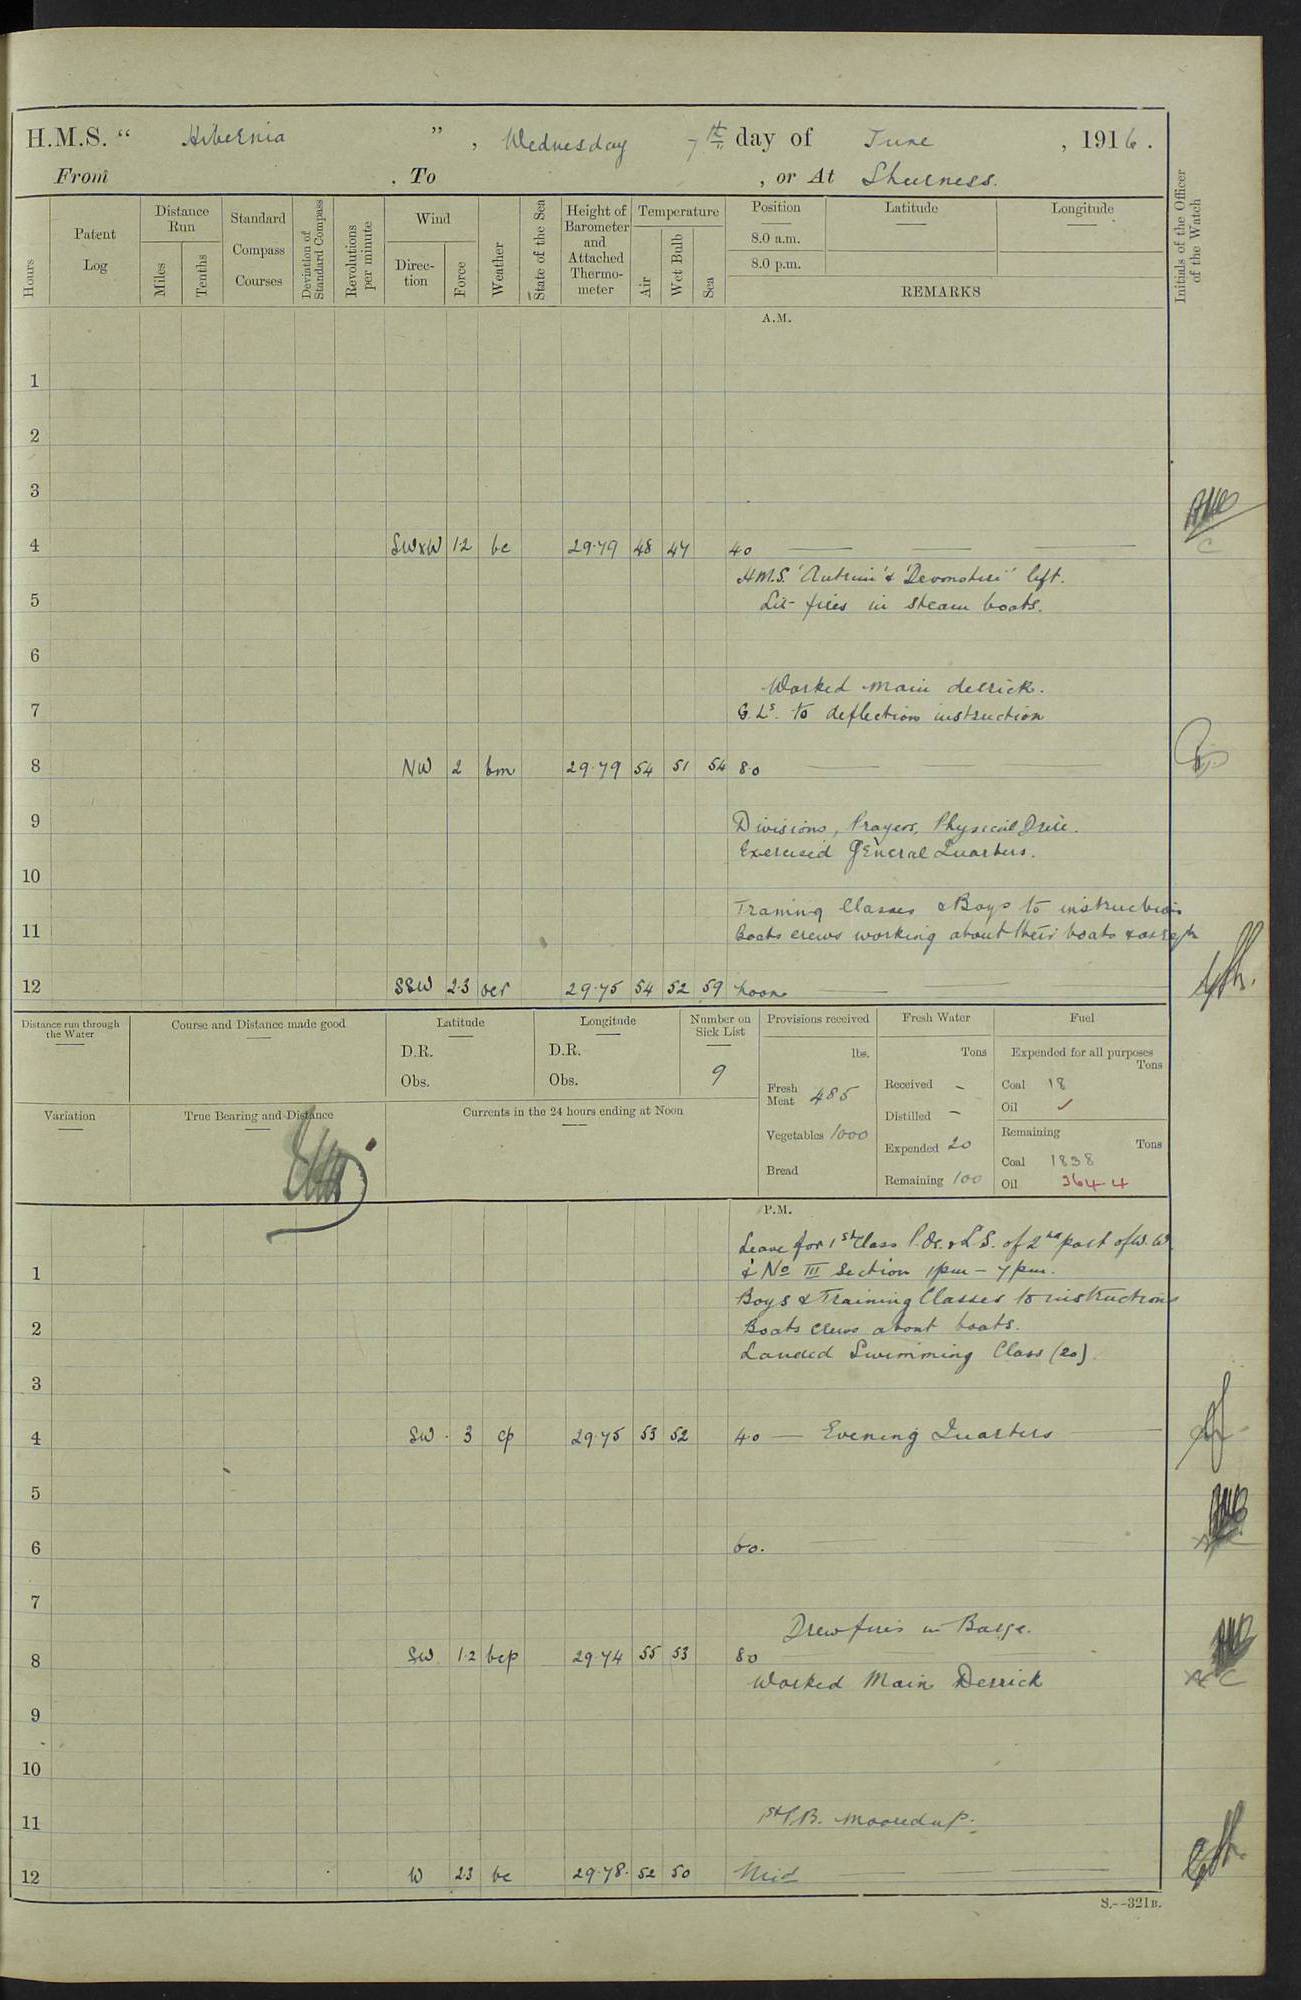 H.M.S. “ Hibernia ” , Wednesday 7th day of June , 1916 .
From . To , or At Sheerness.
Hours
Patent Log
Distance Run
Miles
Tenths
Standard Compass Courses
Deviation of Standard Compass
Revolutions per minute
Wind
Direction
Force
Weather
State of the Sea
Height of Barometer and Attached Thermometer
Temperature
Air
Wet Bulb
Sea
Position
8.0 a.m.
8.0 p.m.
Latitude
Longitude
REMARKS
Initials of the Officer of the Watch
A.M.
1
2
3
4 SWxW 1.2 bc 29.79 48 47 4.0
H.M.S. 'Antrim' & 'Devonshire' left.
5 Lit fires in steam boats.
6
Worked main derrick.
7 G.Ls. to deflection instruction
8 NW 2 bm 29.79 54 51 54 8.0
9 Divisions, Prayers, Physical Drill.
Exercised General Quarters.
10
Training Classes & Boys to instruction
11 Boats crews working about their boats & as req
12 SSW 2.3 ocr 29.75 54 52 59 Noon
Distance run through the Water
Course and Distance made good
Latitude
D.R.
Obs.
Longitude
D.R.
Obs.
Number on Sick List
9
Provisions received
lbs.
Fresh Meat 485
Vegetables 1000
Bread
Fresh Water
Tons
Received –
Distilled –
Expended 20
Remaining 100
Fuel
Expended for all purposes
Tons
Coal 18
Oil ✓
Remaining
Tons
Coal 1838
Oil 364.4
Variation
True Bearing and Distance
Currents in the 24 hours ending at Noon
P.M.
Leave for 1st Class P.Os. & L.S. of 2nd part of W.W.
1 & No III Section 1pm – 7pm.
Boys & Training Classes to instructions
2 Boats crews about boats.
Landed Swimming Class (20).
3
4 SW 3 cp 29.75 53 52 4.0 — Evening Quarters
5
6 6.0.
7
Drew fires in Barge.
8 SW 1.2 bcp 29.74 55 53 8.0
Worked Main Derrick
9
10
11 1st P.B. moored up.
12 W 2.3 bc 29.78 52 50 Mid
S.--321B.